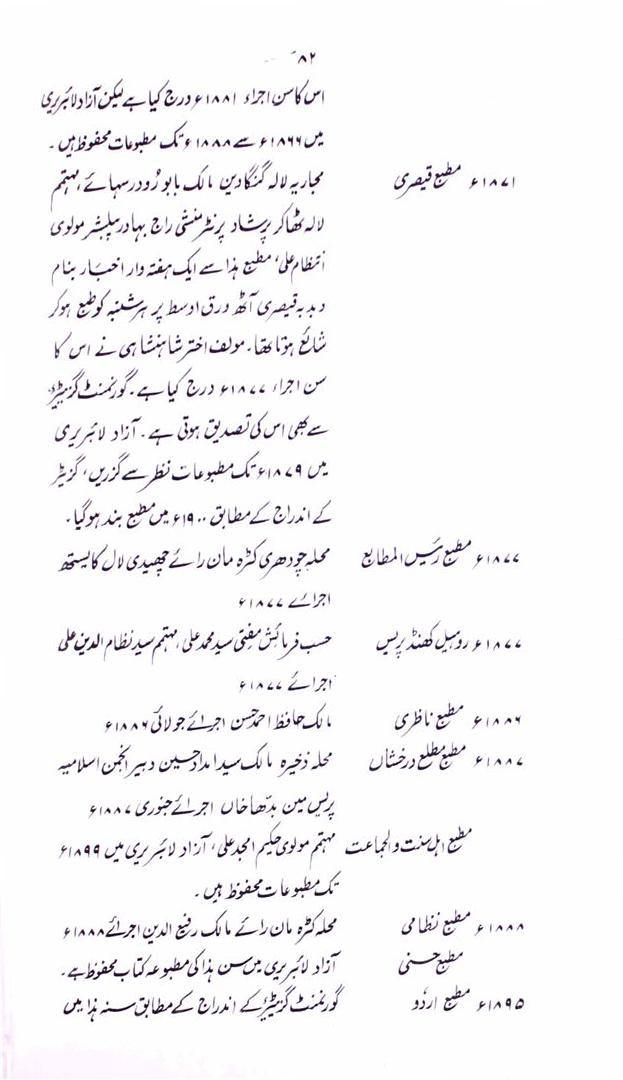 ۸۲
اس کا سن اجراء ۱۸۸۱ء درج کیا ہے لیکن آزاد لائبریری
میں ۱۸۶۶ء سے ۱۸۸۸ء تک مطبوعات محفوظ ہیں۔
۱۸۷۱ء مطبع قیصری مجاریہ لالہ گنگا دین مالک بابو رُودر سہائے، مہتمم
لالہ ٹھاکر پرشاد پرنٹر منشی راج بہادر پبلشر مولوی
انتظام علی، مطبع ہذا سے ایک ہفتہ وار اخبار بنام
دبدبہ قیصری آٹھ ورق اوسط پر ہر شنبہ کو طبع ہوکر
شائع ہوتا تھا۔ مولف اختر شاہنشاہی نے اس کا
سن اجراء ۱۸۷۷ء درج کیا ہے۔ گورنمنٹ گزیٹیئر
سے بھی اس کی تصدیق ہوتی ہے۔ آزاد لائبریری
میں ۱۸۷۹ء تک مطبوعات نظر سے گزریں، گزیٹر
کے اندراج کے مطابق ۱۹۰۰ء میں مطبع بند ہوگیا۔
۱۸۷۷ء مطبع رئیس المطابع محلہ چودھری کٹرہ مان رائے چھیدی لال کایستھ
اجرائے ۱۸۷۷ء
۱۸۷۷ء روہیل کھنڈ پریس حسب فرمائش مفتی سید محمد علی، مہتمم سید نظام الدین علی
اجرائے ۱۸۷۷ء
۱۸۸۶ء مطبع ناظری مالک حافظ احمد حسن اجرائے جولائی ۱۸۸۶ء
۱۸۸۷ء مطبع مطلع درخشاں محلہ ذخیرہ مالک سید امداد حسین دبیر انجمن اسلامیہ
پریس مین بدّھا خاں اجرائے جنوری ۱۸۸۷ء
مطبع اہل سنت والجماعت مہتمم مولوی حکیم امجد علی، آزاد لائبریری میں ۱۸۹۹ء
تک مطبوعات محفوظ ہیں۔
۱۸۸۸ء مطبع نظامی محلہ کٹرہ مان رائے مالک رفیع الدین اجرائے ۱۸۸۸ء
مطبع حسنی آزاد لائبریری میں سن ہذا کی مطبوعہ کتاب محفوظ ہے۔
۱۸۹۵ء مطبع اردُو گورنمنٹ گزیٹیئر کے اندراج کے مطابق سنہ ہذا میں